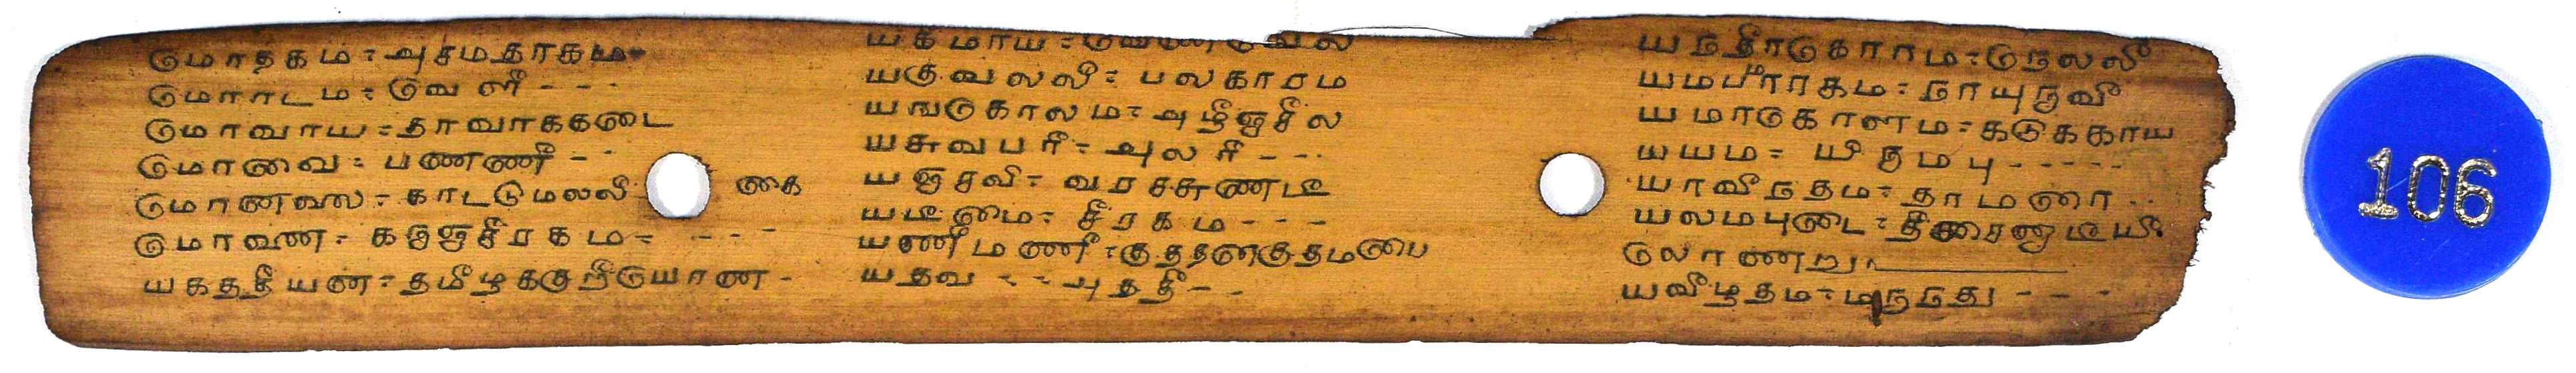 மொதகம = அசமதாகம
மொாடம = வெளி - - -
மொவாய = தாவாகக௫டை
மொவை = பணணி - -
மொணவல = காடடுமலலி
மொவண = கருஞசீரகம = - - - -
யகததியன = தமிழககுறியொன -
கை
யகுவலலி = பலகாரம
யஙகொலம = அழிஞசீல
யசுவபரி = அலரி - - -
யஞசலி = வரசசுணடி
யடிமை = சீரகம - - -
யணிமணி = குததனகுதமபை
யதவ - - அததி - -
யநதிரகொரம = நெலலி
யமபூரகம = நாயுருவி
யமாகொளம = கடுககாய
யயம = யிருமபு - - - - -
யாவிநதம = தாமரை - -
யலமபுடை =
லொணறு
யவிழதம = மருநது - - - -
106